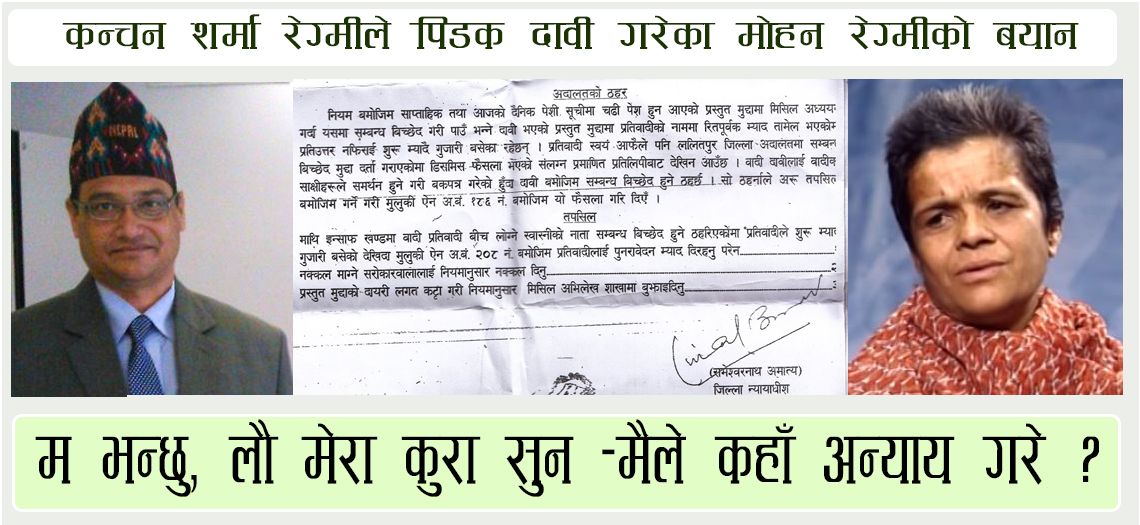 कन्चन शर्मा रेग्मीले पिडक दावी गरेका मोहन रेग्मीको बयान
NEPAL
अदालतको ठहर
नियम बमोजिम साप्ताहिक तथा आजको दैनिक पेशी सूचीमा चढी पेश हुन आएको प्रस्तुत मुद्दामा मिसिल अध्यय
गर्दा यसमा सम्बन्ध बिच्छेद गरी पाउँ भन्ने दावी भएको प्रस्तुत मुद्दामा प्रतिवादीको नाममा रितपूर्वक म्याद तामेल भएकोम
प्रतिउत्तर नफिराई शुरू म्यादै गुजारी बसेका रहेछन् । प्रतिवादी स्वयं आफैले पनि ललितपुर जिल्ला अदालतमा सम्बन
बिच्छेद मुद्दा दर्ता गराएकोमा डिसमिस फैसला भएको संलग्न प्रमाणित प्रतिलिपीबाट देखिन आउँछ । बादी दाबीलाई बादीक
साक्षीहरूले समर्थन हुने गरी बकपत्र गरेको हुँदा दावी बमोजिम सम्बन्ध बिच्छेद हुने ठहर्छ । सो ठहर्नाले अरू तपसिल
बमोजिम गर्ने गरी मुलुकी ऐन अ.बं. १८६ नं. बमोजिम यो फैसला गरि दिएँ ।
तपसिल
माथि इन्साफ खण्डमा बादी प्रतिवादी बीच लोग्ने स्वास्नीको नाता सम्बन्ध बिच्छेद हुने ठहरिएकोमा प्रतिवादीले शुरू म्याद
गुजारी बसेको देखिदा मुलुकी ऐन अ.बं. २०८ नं. बमोजिम प्रतिवादीलाई पुनरावेदन म्याद दिरहनु परेन
नक्कल माग्ने सरोकारवालालाई नियमानुसार नक्कल दिनु
प्रस्तुत मुद्दाको दायरी लगत कट्टा गरी नियमानुसार मिसिल अभिलेख शाखामा बुझाइदिनु
(रामेश्वरनाथ अमात्य)
जिल्ला न्यायाधीश
म भन्छु, लौ मेरा कुरा सुन -मैले कहाँ अन्याय गरे ?